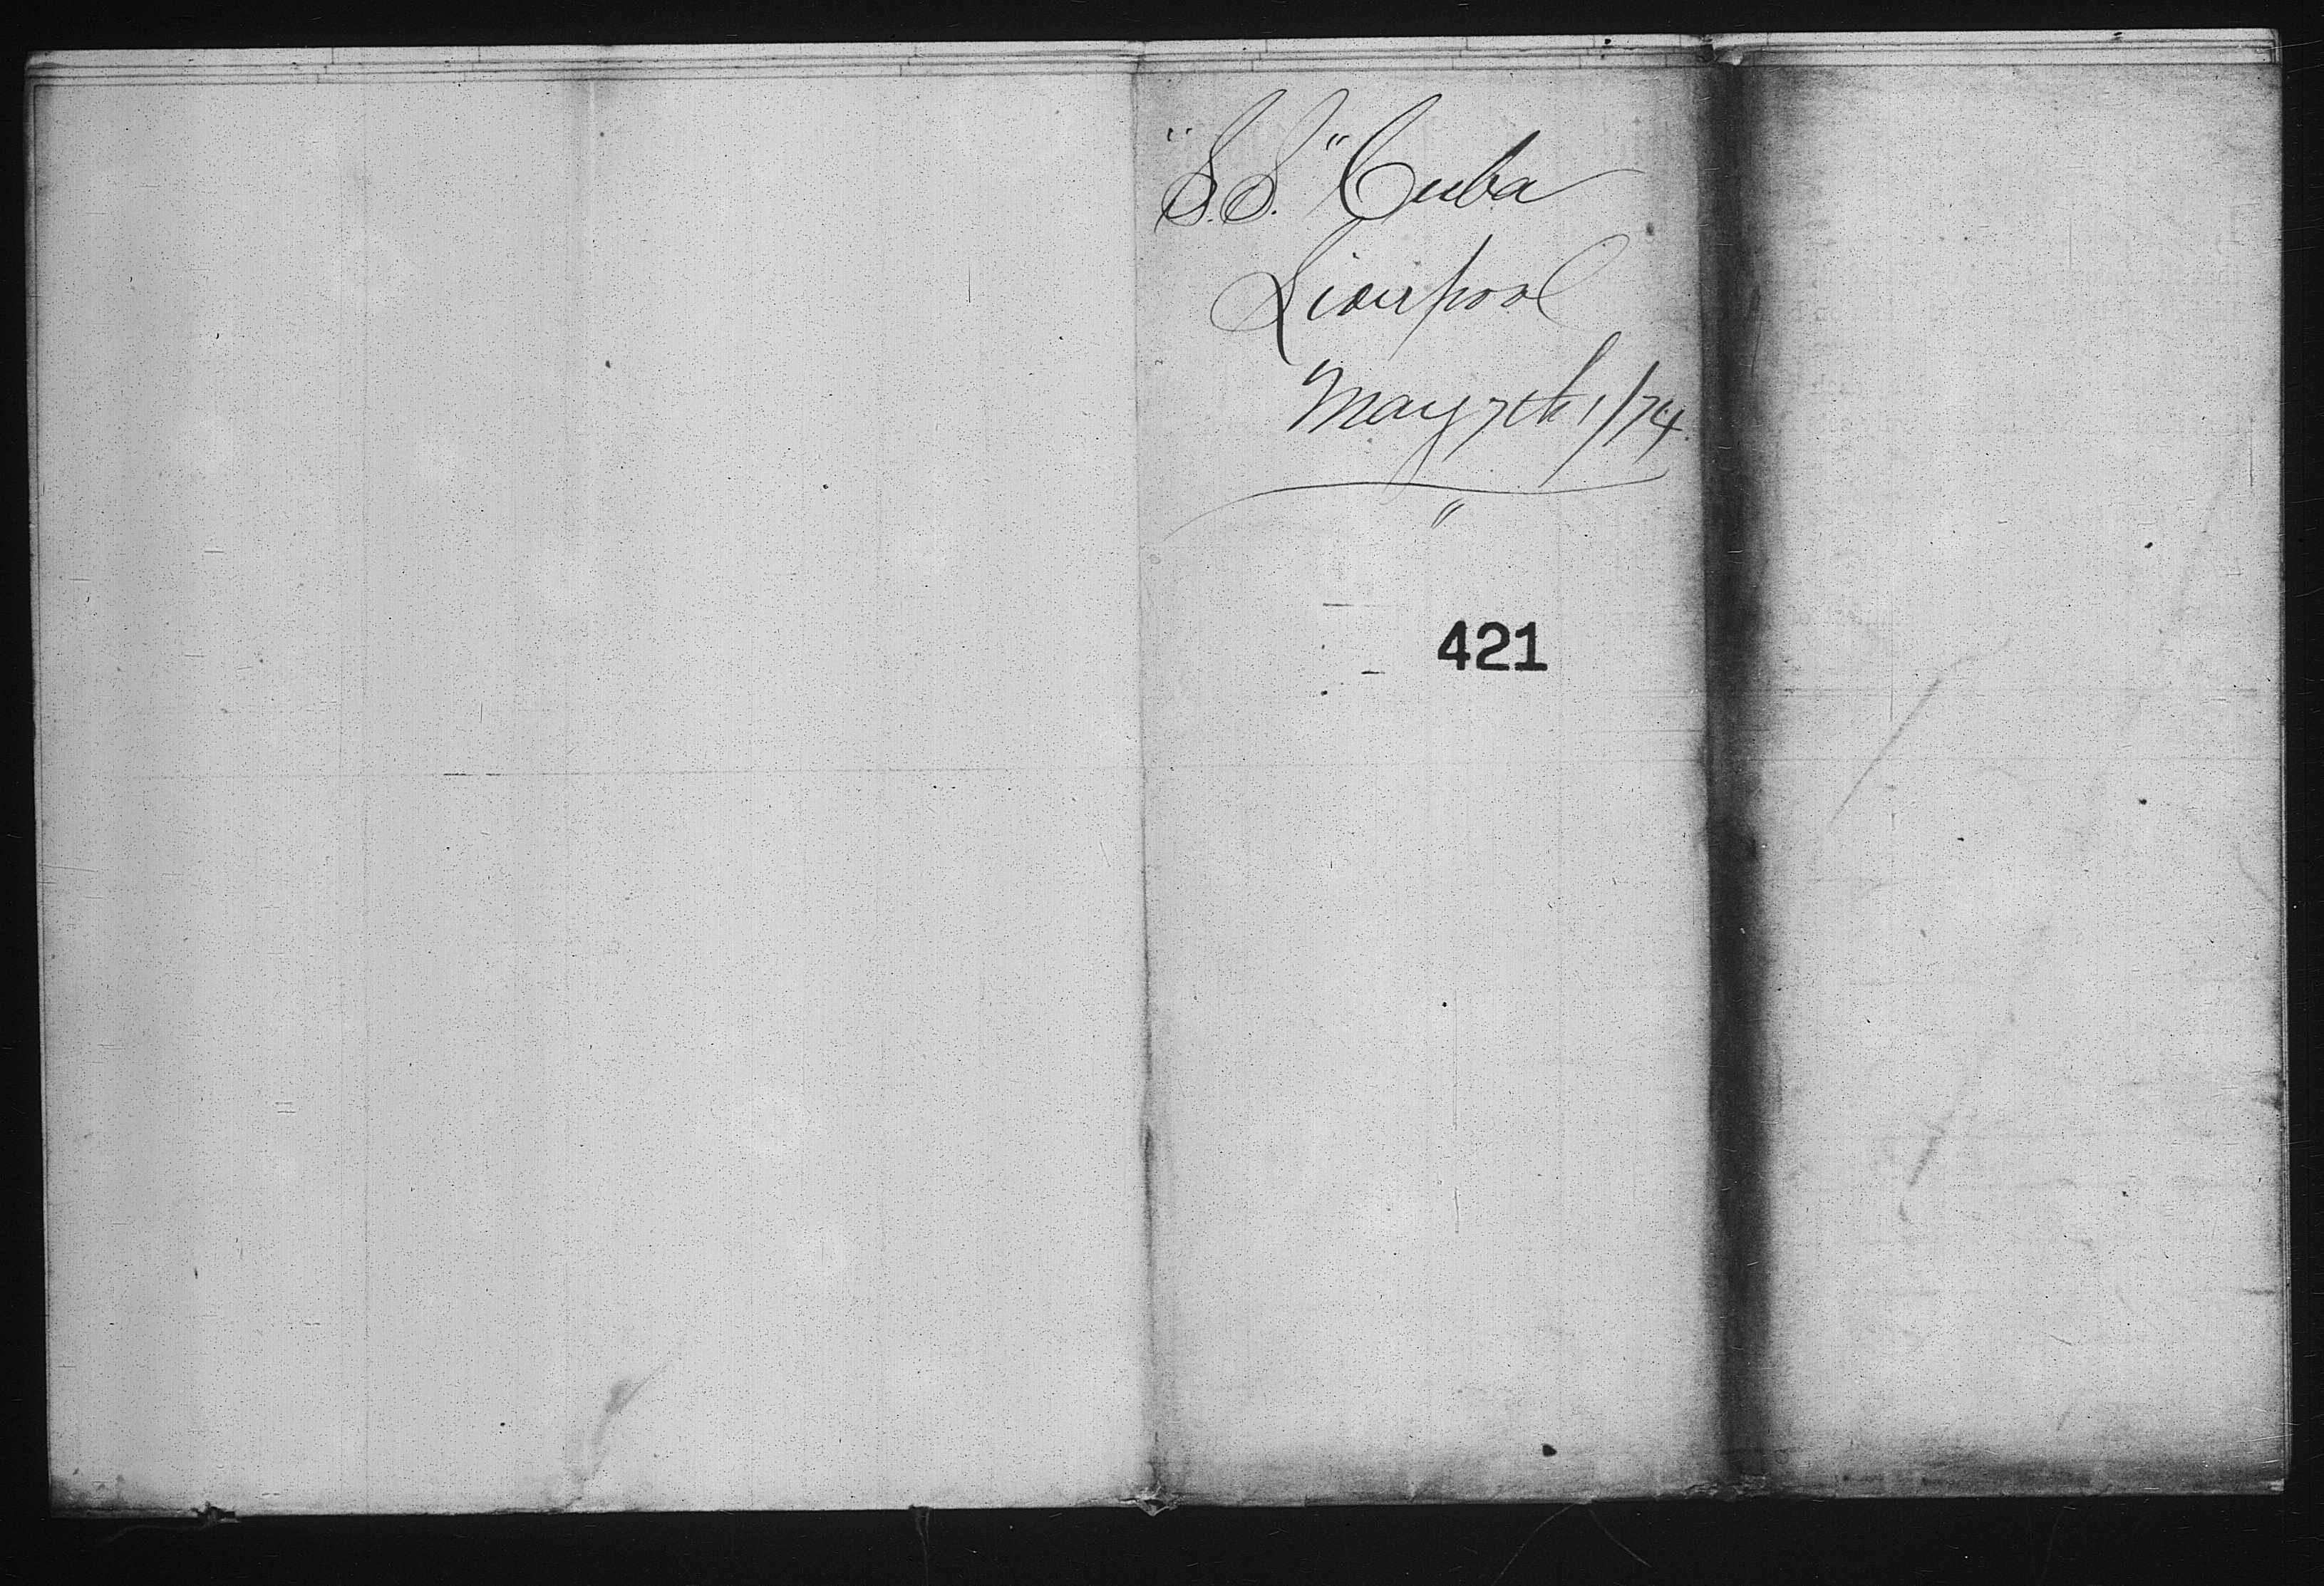 "S.S." Cuba
Liverpool
May 7th 1/74.
"
421